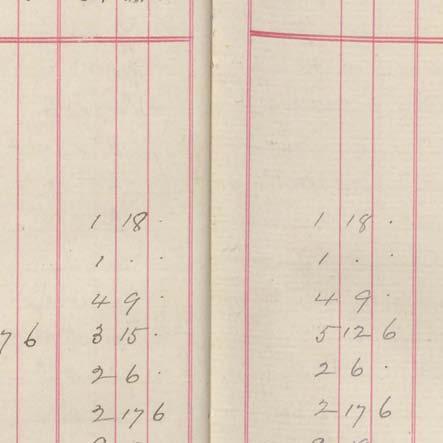 1 18 · 1 18 ·
1 · · 1 · ·
4 9 · 4 9 ·
7 6 3 15 · 5 12 6
2 6 · 2 6 ·
2 17 6 2 17 6